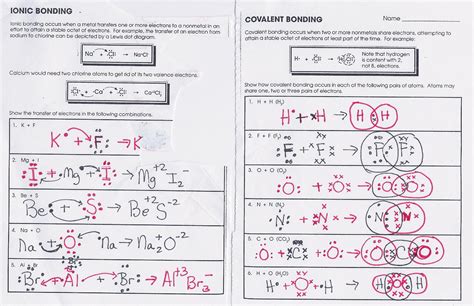 IONIC BONDING
Ionic bonding occurs when a metal transfers one or more electrons to a nonmetal in an
effort to attain a stable octet of electrons. For example, the transfer of an electron from
sodium to chlorine can be depicted by a Lewis dot diagram.
Na + Cl → Na⁺Cl⁻
Calcium would need two chlorine atoms to get rid of its two valence electrons.
Cl + Ca + Cl → Ca⁺²Cl₂⁻
Show the transfer of electrons in the following combinations.
1. K + F
K + F → K
2. Mg + I
I + Mg + I → Mg⁺² I₂⁻
3. Be + S
Be + S → Be⁺² S⁻²
4. Na + O
Na + O → Na₂⁺ O⁻²
5. Al + Br
Br + Al + Br → Al⁺³ Br₃⁻
Br
COVALENT BONDING
Name
Covalent bonding occurs when two or more nonmetals share electrons, attempting to
attain a stable octet of electrons at least part of the time. For example:
H + Cl → H Cl
Note that hydrogen
is content with 2,
not 8, electrons.
Show how covalent bonding occurs in each of the following pairs of atoms. Atoms may
share one, two or three pairs of electrons.
1. H + H (H₂)
H + H → H H
2. F + F (F₂)
F + F → F F
3. O + O (O₂)
O + O → O O
4. N + N (N₂)
N + N → N N
5. C + O (CO₂)
O + C + O → O C O
6. H + O (H₂O)
H + O + H → H O H